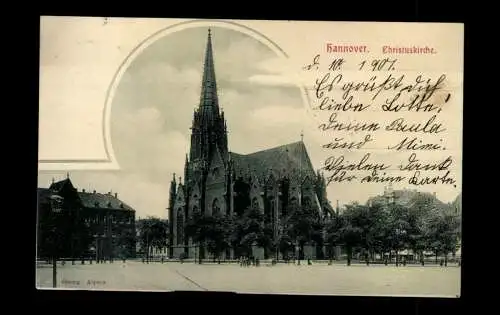 Hannover. Christuskirche.
d. 10. 1901.
Es grüßt dich
liebe Lotte,
deine Paula
und Mimi.
Vielen dank
für deine Karte.